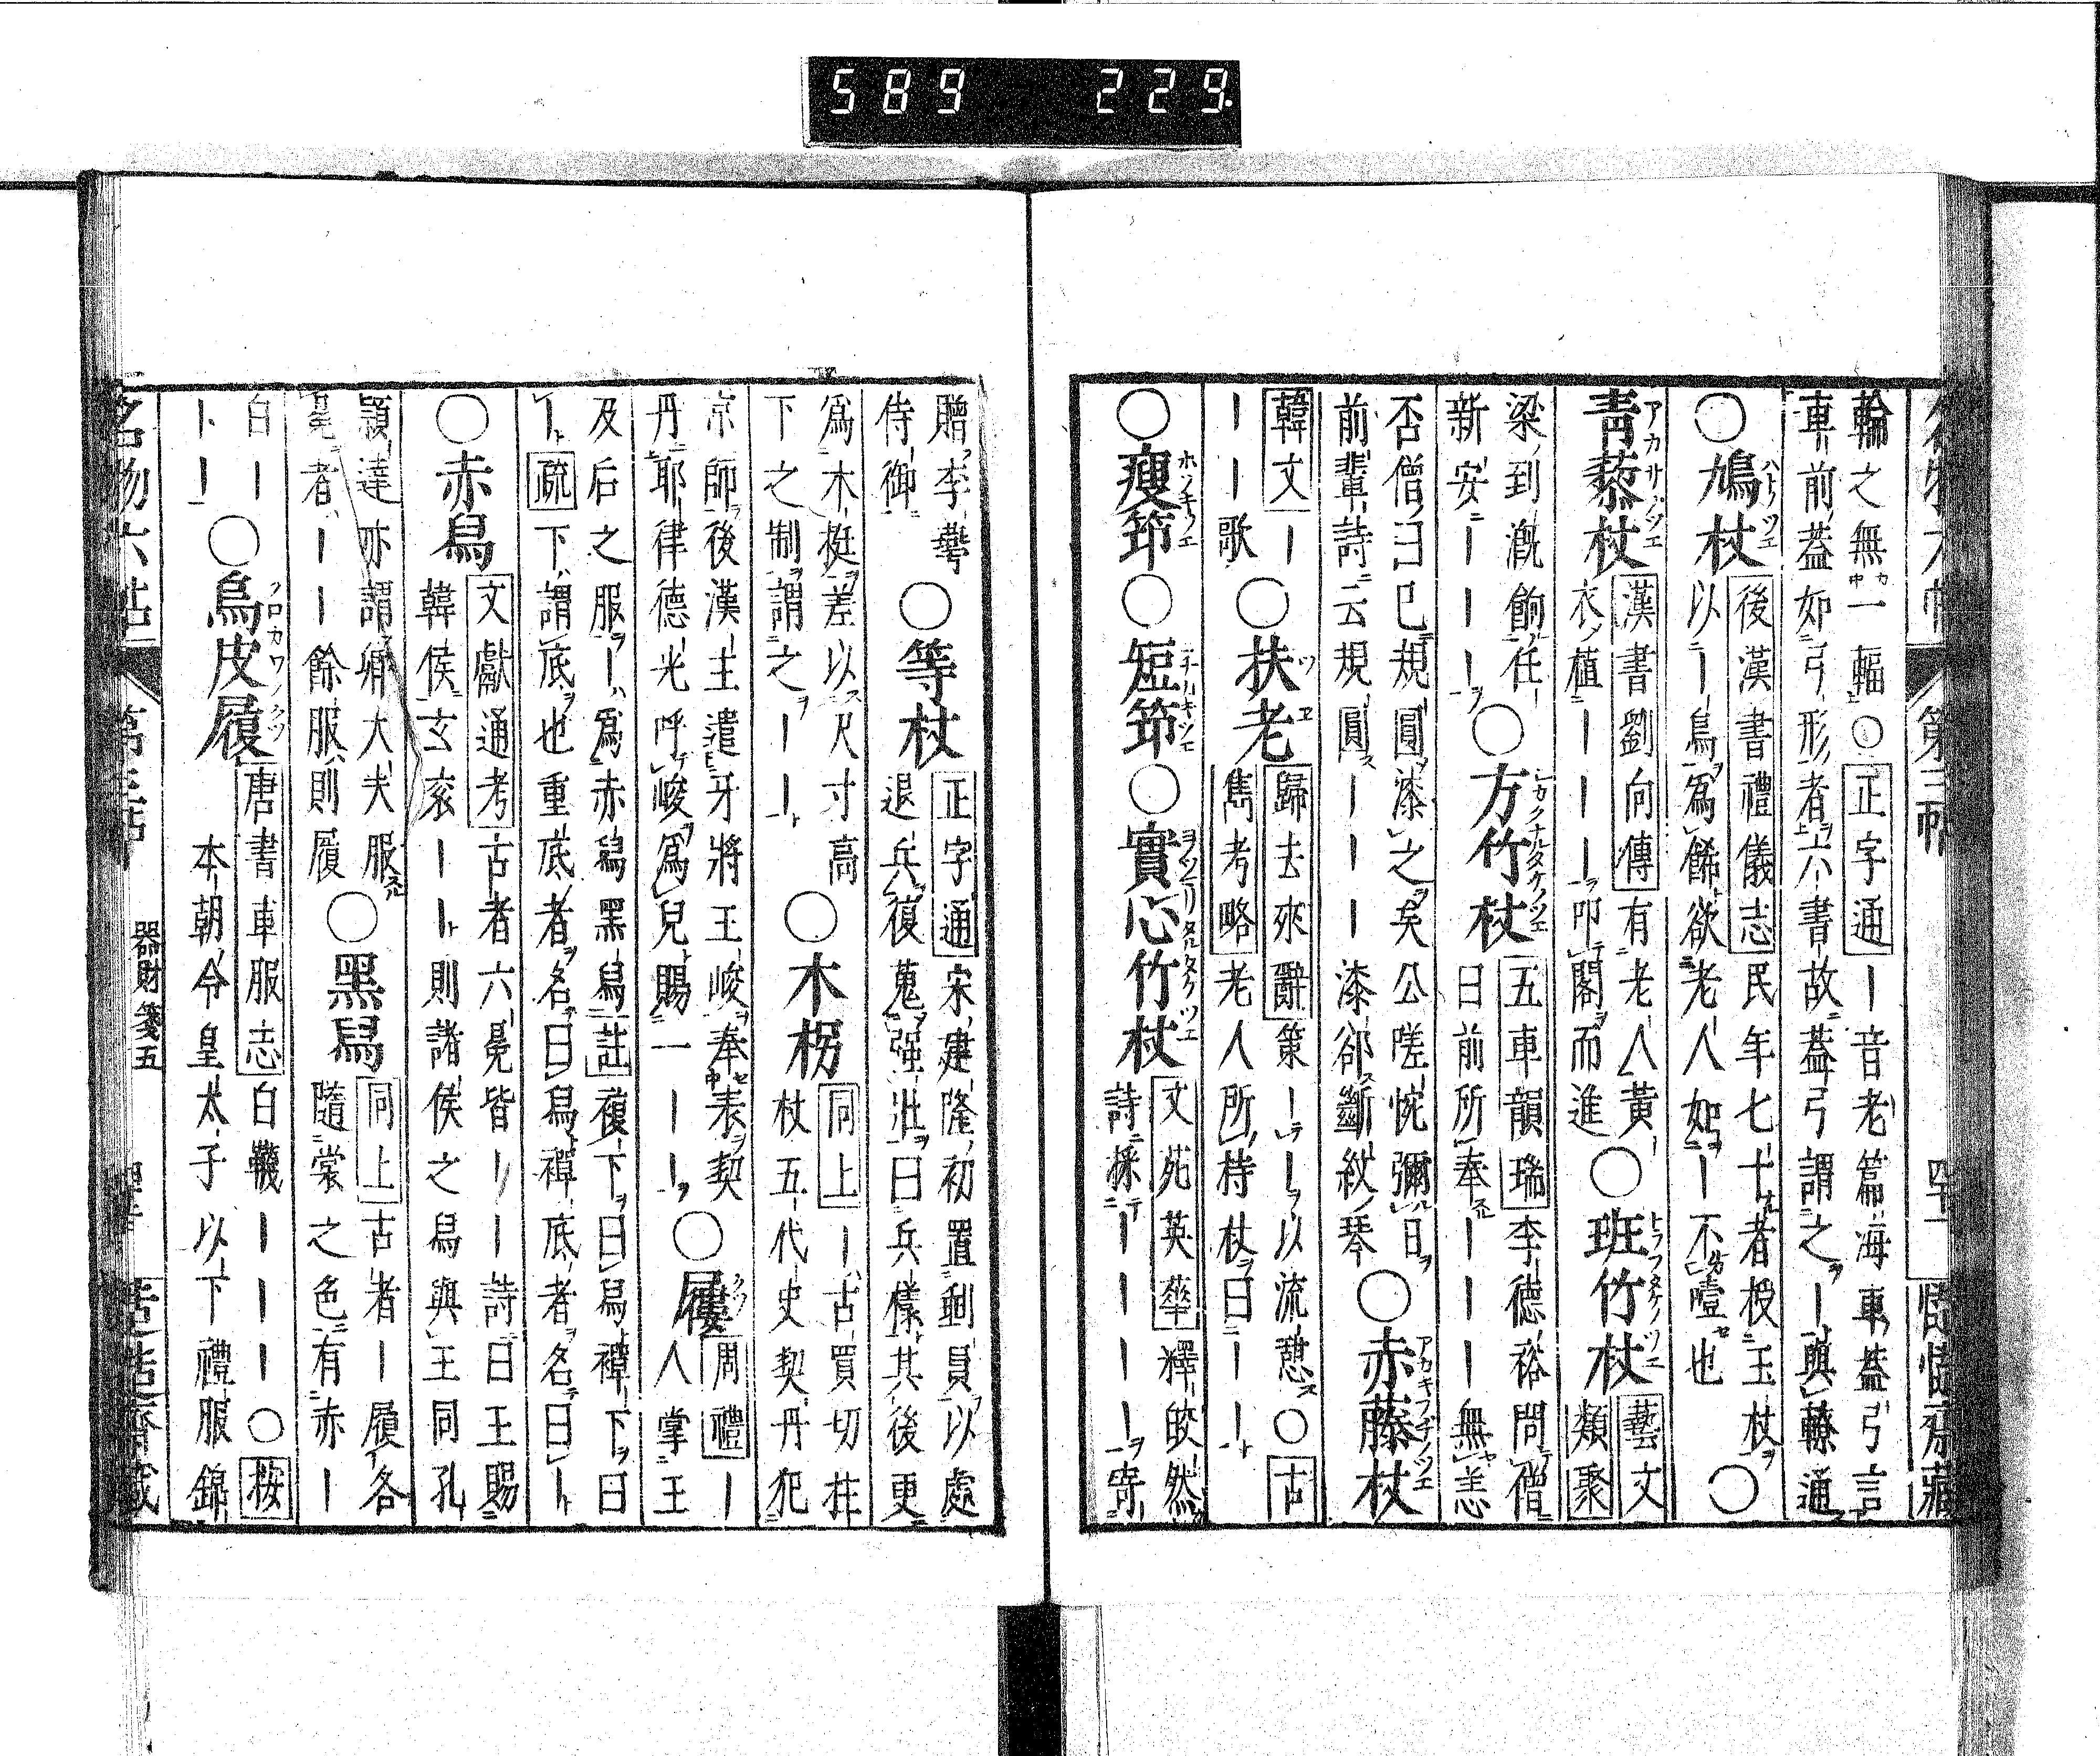 589 229.
輪之無一輻○正字通ー音老篇海車葢弓言
車前葢如弓形者六書故葢弓謂之ー與轑通
○鳩杖 後漢書禮儀志民年七十者授玉杖○
以ー鳥爲餙欲老人如ー不噎也
青藜杖 漢書劉向傳有老人黄
衣植ーーー叩閣而進
○班竹杖 藝文
類聚
梁到漑餉任
新安ーーー
○方竹杖 五車韻瑞李德裕問僧
曰前所奉ーーー無恙
否僧曰已規圓漆之矣公嗟惋彌日
前輩詩云規圓ーーー漆郤斷紋琴
○赤藤杖
韓文ー
ーー歌
○扶老 歸去來辭策ーー以流憩○古
雋考略老人所持杖曰ーー
○瘦笻○短笻○實心竹杖 文苑英華釋皎然
詩採ーーーー寄
贈李蕚
侍御
○等杖 正字通宋建隆初置剩員以處
退兵復蒐强壯曰兵樣其後更
爲木梃差以尺寸高
下之制謂之ーー
○木柺 同上ー古買切拄
杖五代史契丹犯
京師後漢主遣牙將王峻奉表契
丹耶律德光呼峻爲兒賜一ーー
○屨 周禮ー
人掌王
及后之服ー爲赤舄黑舄註複下曰舄襌下曰
ー疏下謂底也重底者名曰舄襌底者名曰ー
○赤舄 文獻通考古者六冕皆ーー詩曰王賜
韓侯玄衮ーー則諸侯之舄與王同孔
頴達亦謂大夫服
冕者ーー餘服則履
○黑舄 同上古者ー履各
隨裳之色有赤ー
白ー
ーー
○烏皮履 唐書車服志白韈ーーー○按
本朝令皇太子以下禮服錦
名物六帖 第三帖 器財箋五